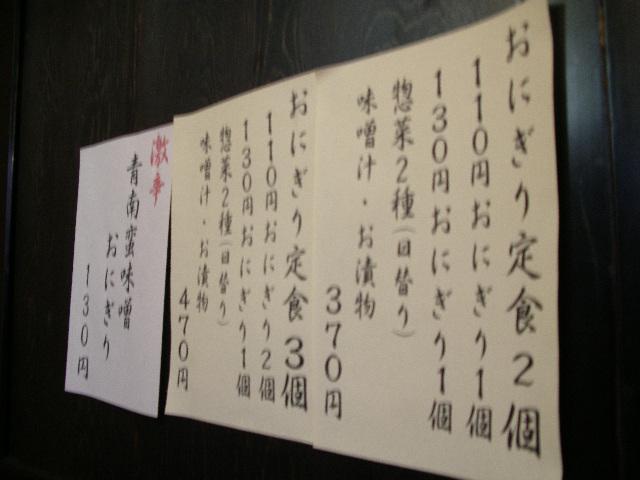 おにぎり定食2個
110円おにぎり1個
130円おにぎり1個
惣菜2種(日替り)
味噌汁・お漬物
370円
おにぎり定食3個
110円おにぎり2個
130円おにぎり1個
惣菜2種(日替り)
味噌汁・お漬物
470円
激辛
青南蛮味噌
おにぎり
130円